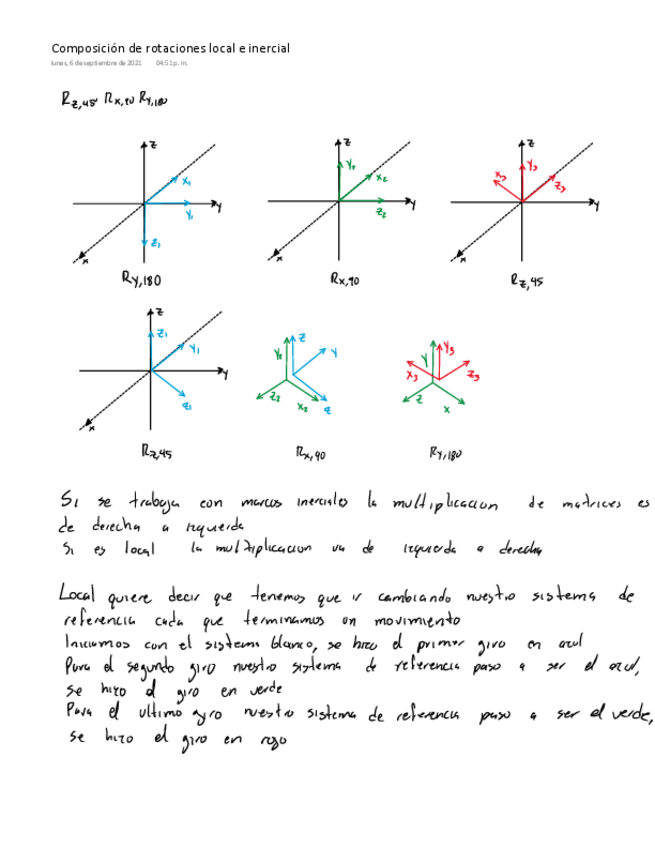 Composición de rotaciones local e inercial
lunes, 6 de septiembre de 2021 04:51 p. m.
Rz,45 Rx,90 Ry,180
z
x1
y
y1
z1
x
z
y2
x2
y
z2
x
z
y3
x3
z3
y
x
Ry,180
Rx,90
Rz,45
z
z1
y1
y
x
z
y2
y
z2
x2
y
y3
x3
z3
z
x
Rz,45
Rx,90
Ry,180
Si se trabaja con marcos inerciales la multiplicacion de matrices es
de derecha a izquierda
Si es local la multiplicacion va de izquierda a derecha
Local quiere decir que tenemos que ir cambiando nuestro sistema de
referencia cada que terminamos un movimiento
Iniciamos con el sistema blanco, se hizo el primer giro en azul
Para el segundo giro nuestro sistema de referencia paso a ser el azul,
se hizo el giro en verde
Para el ultimo gyro nuestro sistema de referencia paso a ser el verde,
se hizo el giro en rojo